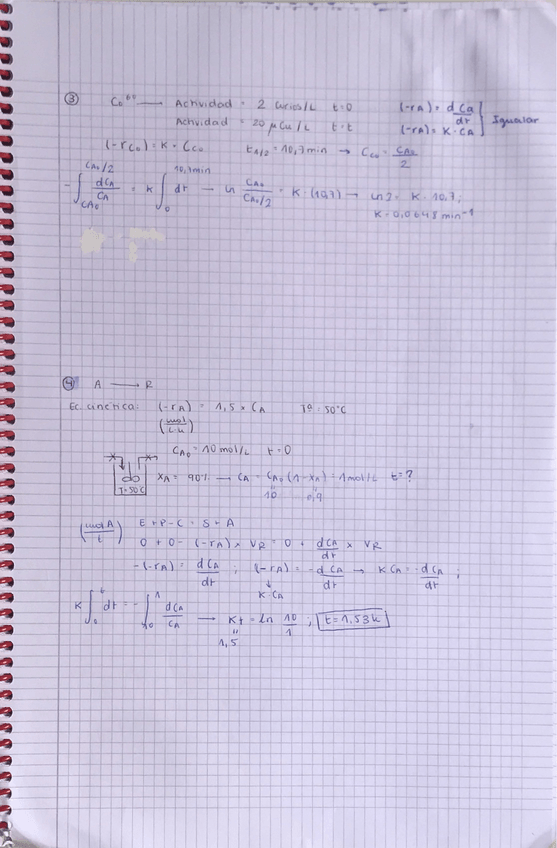 ③ Co⁶⁰ → Actividad = 2 curios/L t=0
Actividad = 20 μCu/L t=t
(-rA) = dCa/dt
(-rA) = K·CA } Igualar
(-rCo) = K * Cco t1/2 = 10,7min → Cco = CA0/2
-∫CA0^CA0/2 dCA/CA = K ∫0^10,7min dt → ln CA0/CA0/2 = K·(10,7) → ln2 = K·10,7;
K=0,0648 min⁻¹
④ A → R
Ec. cinética: (-rA) = 1,5 * CA Tª=50ºC
(mol/L·h)
CA0 = 10 mol/L t=0
T=50ºC
XA = 90% → CA = CA0 (1-XA) = 1mol/L t=?
10 0,9
(molA/t) E+P-C = S+A
0+0-(-rA) * VR = 0 + dCA/dt * VR
-(-rA) = dCA/dt ; (-rA) = -dCA/dt → KCA = -dCA/dt ;
K·CA
K∫0^t dt = -∫10^1 dCA/CA → Kt = ln 10/1 ; t=1,53h
1,5